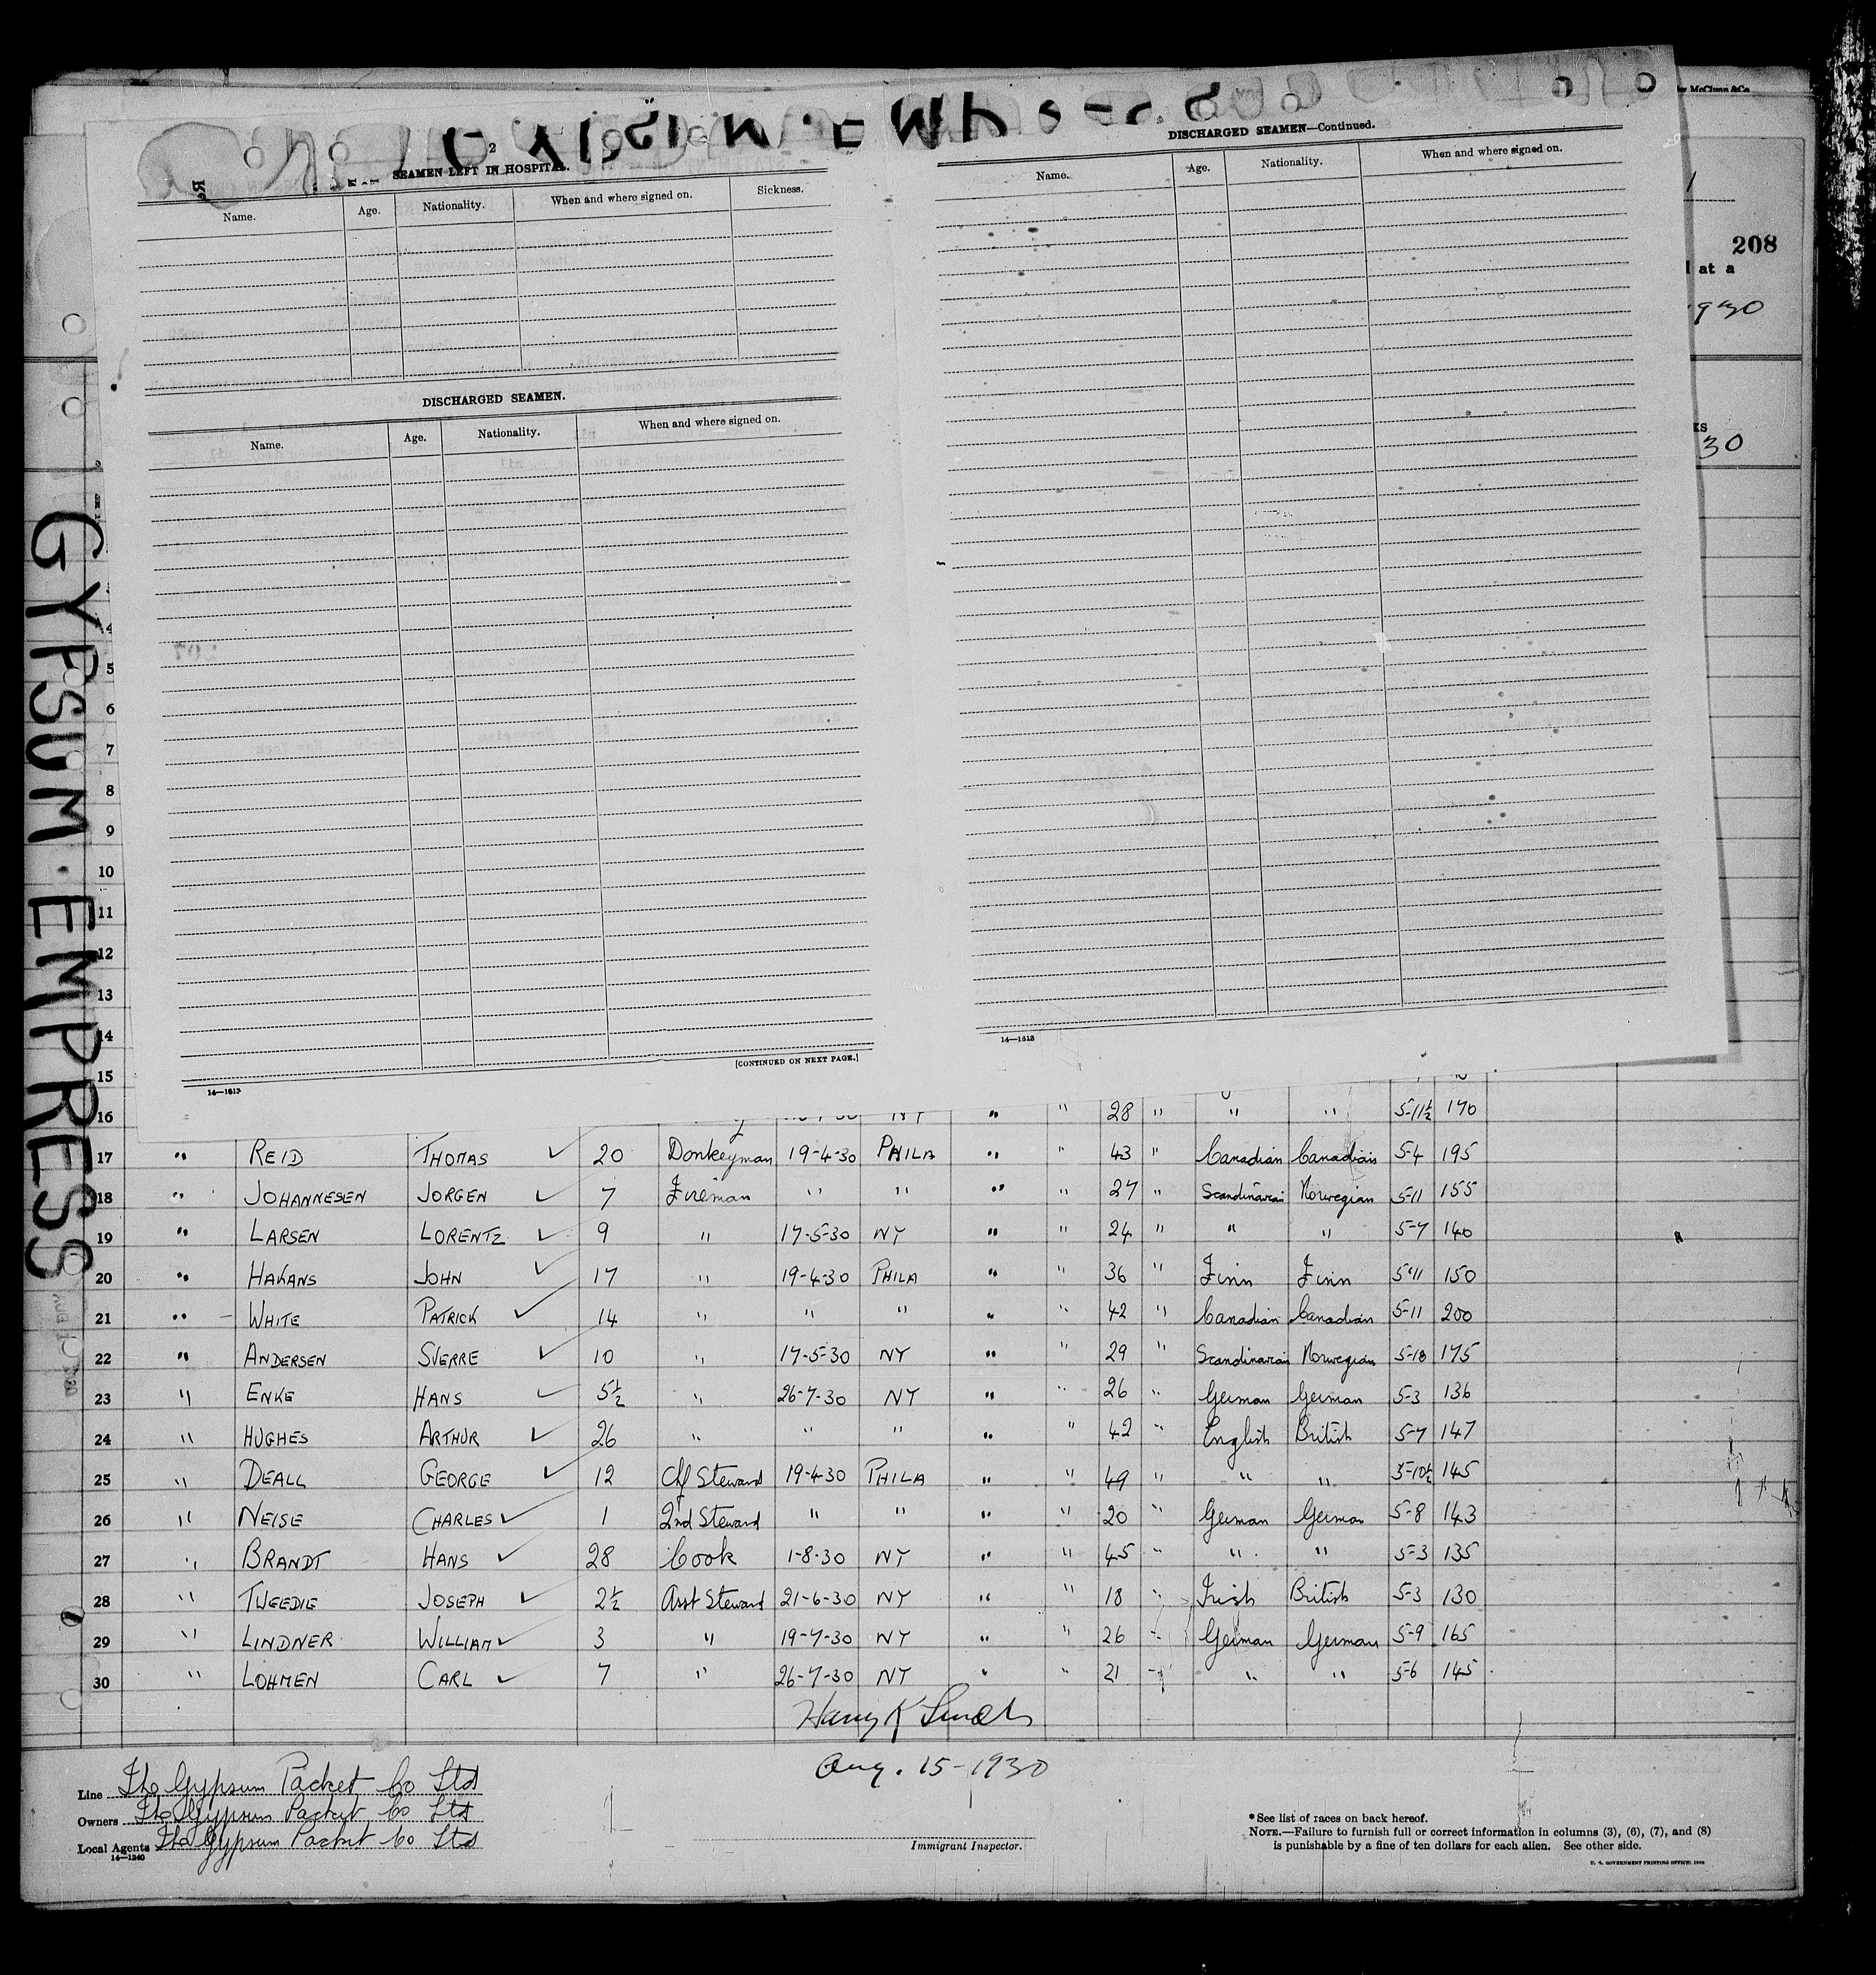 2
SEAMEN LEFT IN HOSPITAL.
Name. Age. Nationality. When and where signed on. Sickness.
DISCHARGED SEAMEN.
Name. Age. Nationality. When and where signed on.
[CONTINUED ON NEXT PAGE.]
DISCHARGED SEAMEN—Continued.
Name. Age. Nationality. When and where signed on.
14—1613
208
at a
1930
30
GYPSUM · EMPRESS
4
5
6
7
8
9
10
11
12
13
14
15
16 NY " " 28 " " " 5-11½ 170
17 " REID THOMAS ✓ 20 Donkeyman 19-4-30 PHILA " " 43 " Canadian Canadian 5-4 195
18 " JOHANNESEN JORGEN ✓ 7 Fireman " " " " 27 " Scandinavian Norwegian 5-11 155
19 " LARSEN LORENTZ ✓ 9 " 17-5-30 NY " " 24 " " " 5-7 140
20 " HAKANS JOHN ✓ 17 " 19-4-30 PHILA " " 36 " Finn Finn 5-11 150
21 " WHITE PATRICK ✓ 14 " " " " " 42 " Canadian Canadian 5-11 200
22 " ANDERSEN SVERRE ✓ 10 " 17-5-30 NY " " 29 " Scandinavian Norwegian 5-10 175
23 " ENKE HANS ✓ 5½ " 26-7-30 NY " " 26 " German German 5-3 136
24 " HUGHES ARTHUR ✓ 26 " " " " " 42 " English British 5-7 147
25 " DEALL GEORGE ✓ 12 Chf Steward 19-4-30 PHILA " " 49 " " " 5-10½ 145
26 " NEISE CHARLES ✓ 1 2nd Steward " " " " 20 " German German 5-8 143
27 " BRANDT HANS ✓ 28 Cook 1-8-30 NY " " 45 " " " 5-3 135
28 " TWEEDIE JOSEPH ✓ 2½ Asst Steward 21-6-30 NY " " 18 " Irish British 5-3 130
29 " LINDNER WILLIAM ✓ 3 " 19-7-30 NY " " 26 " German German 5-9 165
30 " LOHMEN CARL ✓ 7 " 26-7-30 NY " " 21 " " " 5-6 145
Harry K Smith
Aug. 15-1930
Immigrant Inspector.
Line The Gypsum Packet Co Ltd
Owners The Gypsum Packet Co Ltd
Local Agents The Gypsum Packet Co Ltd
14—1240
*See list of races on back hereof.
NOTE.—Failure to furnish full or correct information in columns (3), (6), (7), and (8)
is punishable by a fine of ten dollars for each alien. See other side.